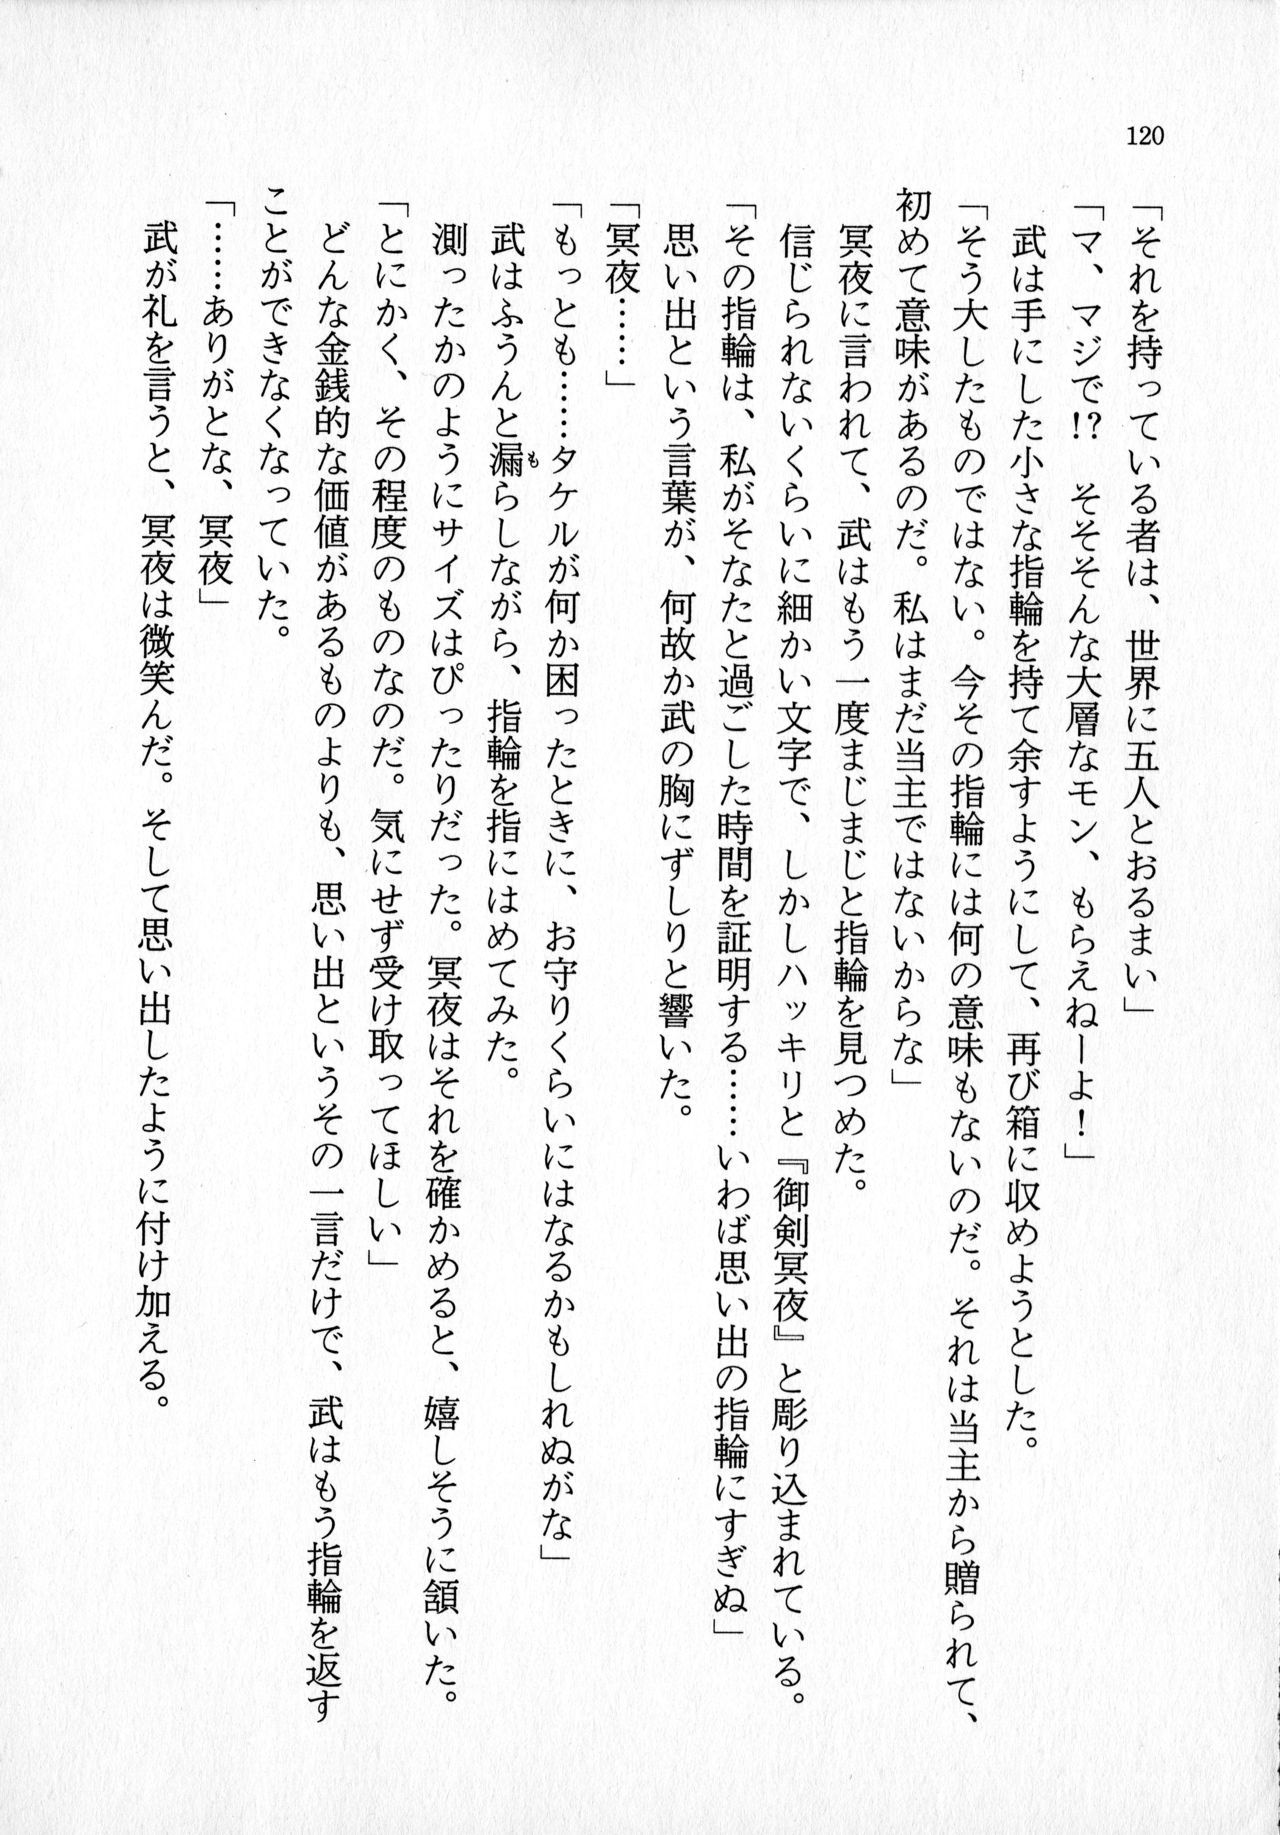 120
「それを持っている者は、世界に五人とおるまい」
「マ、マジで!?　そそそんな大層なモン、もらえねーよ！」
　武は手にした小さな指輪を持て余すようにして、再び箱に収めようとした。
「そう大したものではない。今その指輪には何の意味もないのだ。それは当主から贈られて、
初めて意味があるのだ。私はまだ当主ではないからな」
　冥夜に言われて、武はもう一度まじまじと指輪を見つめた。
　信じられないくらいに細かい文字で、しかしハッキリと『御剣冥夜』と彫り込まれている。
「その指輪は、私がそなたと過ごした時間を証明する……いわば思い出の指輪にすぎぬ」
　思い出という言葉が、何故か武の胸にずしりと響いた。
「冥夜……」
「もっとも……タケルが何か困ったときに、お守りくらいにはなるかもしれぬがな」
　武はふうんと漏らしながら、指輪を指にはめてみた。
　測ったかのようにサイズはぴったりだった。冥夜はそれを確かめると、嬉しそうに頷いた。
「とにかく、その程度のものなのだ。気にせず受け取ってほしい」
　どんな金銭的な価値があるものよりも、思い出というその一言だけで、武はもう指輪を返す
ことができなくなっていた。
「……ありがとな、冥夜」
　武が礼を言うと、冥夜は微笑んだ。そして思い出したように付け加える。